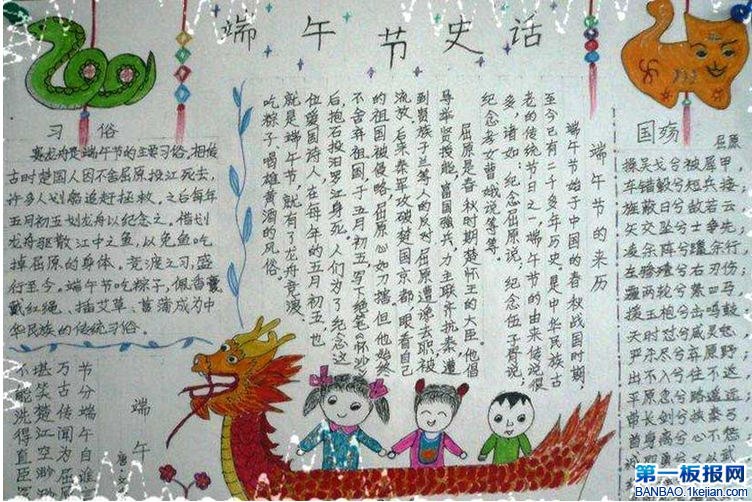 端午节史话
习俗
赛龙舟是端午节的主要习俗。相传
古时楚国人因不舍屈原投江死去，
许多人划船追赶拯救。之后每年
五月初五划龙舟以纪念之。借划
龙舟驱散江中之鱼，以免鱼吃
掉屈原的身体。竞渡之习，盛
行至今。端午节吃粽子，佩香囊
戴红绳、插艾草、菖蒲成为中
华民族的传统习俗。
端午节的来历
端午节始于中国的春秋战国时期，
至今已有二千多年历史。是中华民族古
老的传统节日之一，端午节的由来传说很
多，诸如：纪念屈原说；纪念伍子胥说；
纪念孝女曹娥说等等。
屈原是春秋时期楚怀王的大臣。他倡
导举贤授能，富国强兵，力主联齐抗秦，遭
到贵族子兰等人的反对，屈原遭谗去职，被
流放。后来秦军攻破楚国京都，眼看自己
的祖国被侵略，屈原心如刀搢但他始终
不舍弃祖国，于五月初五写下绝笔《怀沙》
后，抱石投汨罗江身死，人们为了纪念这
位爱国诗人，在每年的五月初五，也
就是端午节，就有了龙舟竞渡、
吃粽子、喝雄黄酒的风俗。
国殇
屈原
操吴戈兮被犀甲，
车错毂兮短兵接，
旌蔽日兮敌若云，
矢交坠兮士争先，
凌余阵兮躐余行，
左骖殪兮右刃伤，
霾两轮兮絷四马，
援玉枹兮击鸣鼓，
天时怼兮威灵怒，
严杀尽兮弃原野，
出不入兮往不返，
平原忽兮路遥远，
带长剑兮挟秦弓，
首身离兮心不惩，
端午
节分端午自谁
万古传闻为屈
堪笑楚江空渺
不能洗得直臣
第一板报网
BANBAO.1kejian.com